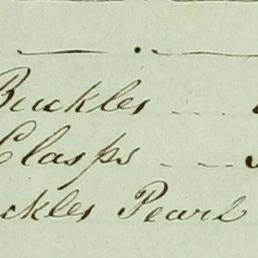 Buckles
Clasps
ckles Pearl